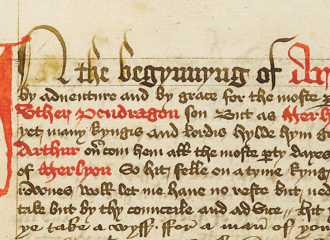 In the begynnyng of Ar
by adventure and by grace for the moste
Uther Pendragon son But as Merl
yet many kyngis and lordis hylde hym
Arthur oūcom hem all the moste pty dayes
of Merlyon So hit felle on a tyme kyng
rdownes woll let me have no reste but ned
take but by thy counceile and advice hit
ye take a wyff ffor a man of you